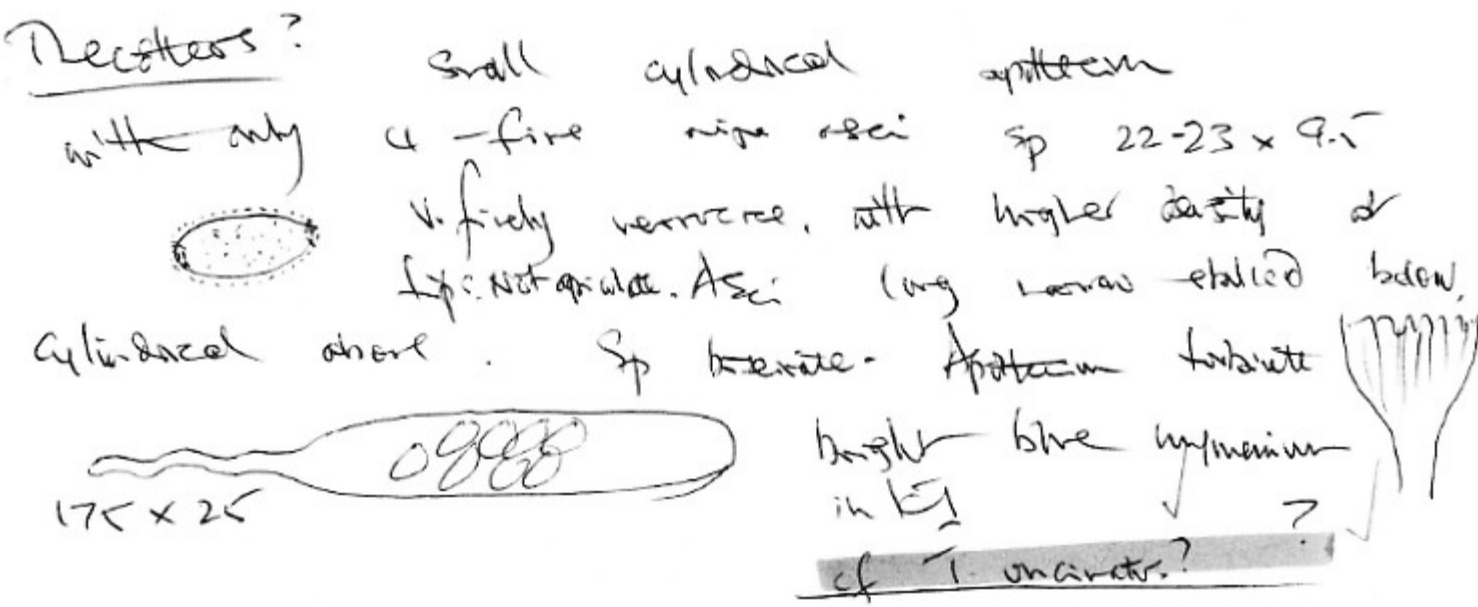 Thecotheus? Small cylindrical apothecium
with only 4-five ripe asci Sp 22-23 x 9.5
V. finely verrucose, with higher density at
tips. Not apiculate. Asci long narrow stalked below,
Cylindrical above. Sp biseriate. Apothecium turbinate
bright blue hymenium
175 x 25
in KI
cf T. uncinatus? ?